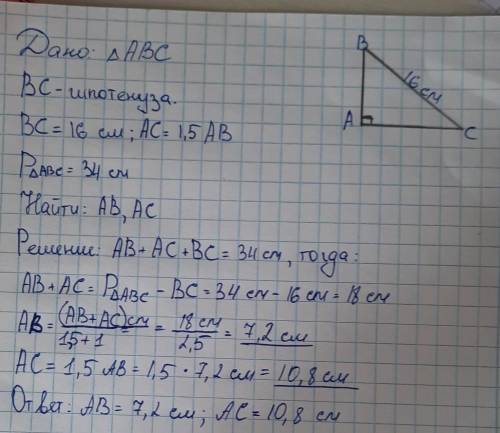 Дано: △ABC
BC - гипотенуза.
BC = 16 см; AC = 1,5 AB
P△ABC = 34 см
Найти: AB, AC
Решение: AB + AC + BC = 34 см, тогда:
AB + AC = P△ABC - BC = 34 см - 16 см = 18 см
AB = (AB + AC)см / 1,5 + 1 = 18 см / 2,5 = 7,2 см
AC = 1,5 AB = 1,5 · 7,2 см = 10,8 см
Ответ: AB = 7,2 см; AC = 10,8 см
B
16 см
A
C